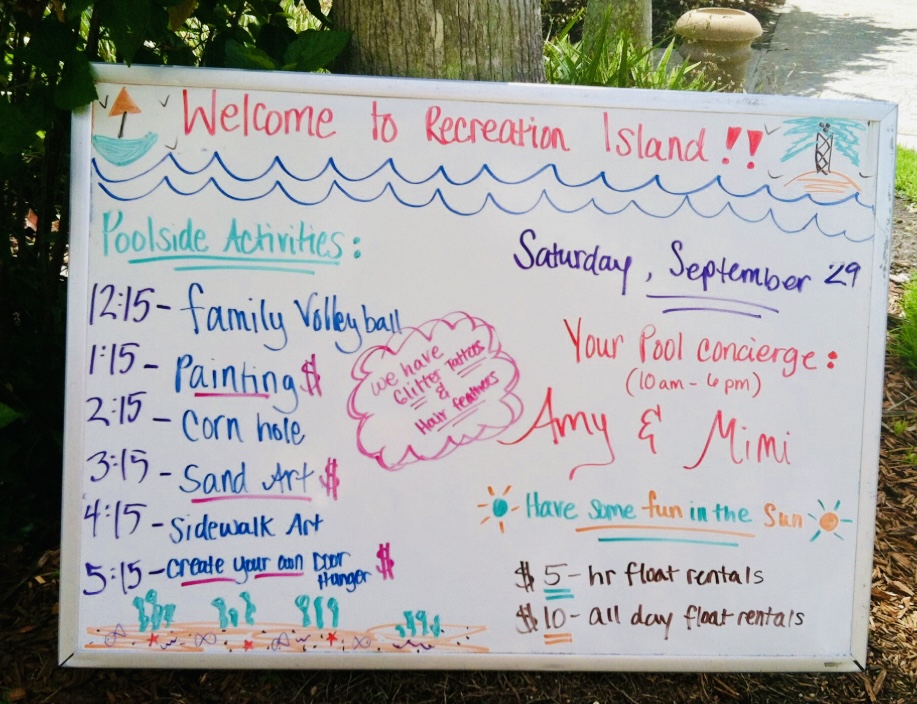 Welcome to Recreation Island!!
Poolside Activities:
12:15 - family Volleyball
1:15 - Painting $
2:15 - Corn hole
3:15 - Sand Art $
4:15 - Sidewalk Art
5:15 - create your own Door
Hanger $
we have
Glitter Tattoos
&
Hair feathers
Saturday, September 29
Your Pool concierge:
(10am - 6pm)
Amy & Mimi
Have some fun in the Sun
$5 - hr float rentals
$10 - all day float rentals